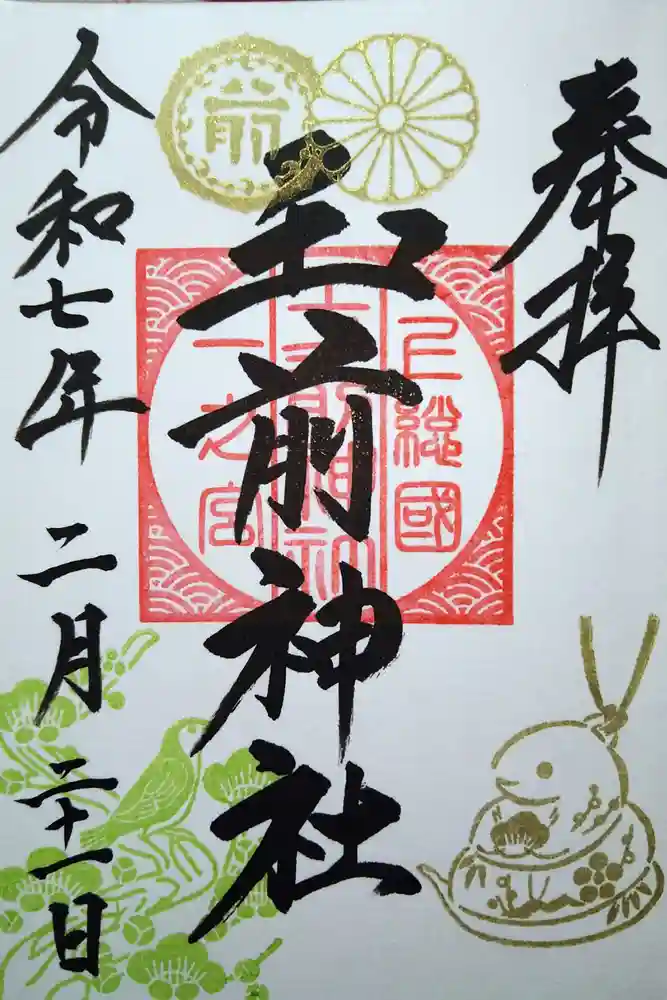 奉拝
上総國
玉前神社
一之宮
令和七年 二月 二十一日